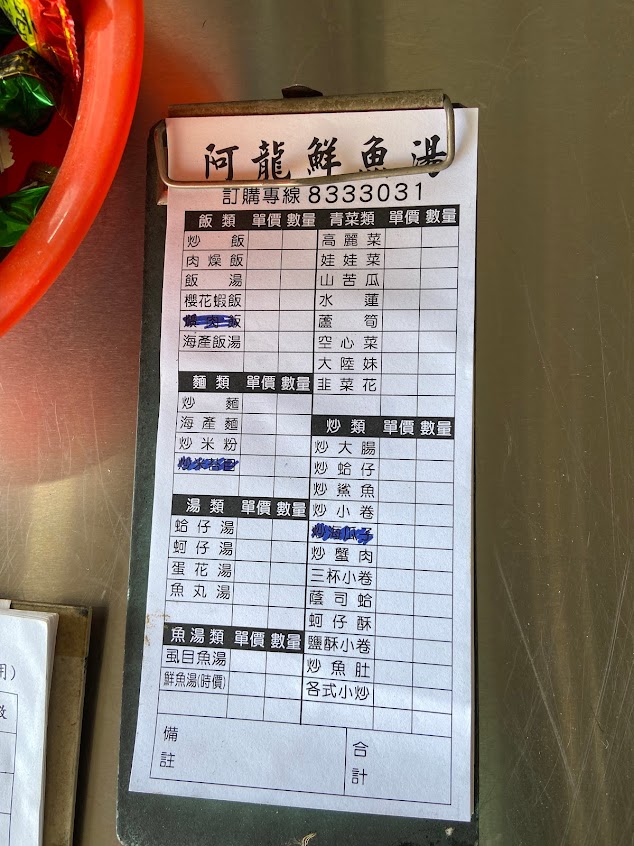 阿龍鮮魚湯
訂購專線 8333031
飯類 單價 數量
炒飯
肉燥飯
飯湯
櫻花蝦飯
海產飯湯
麵類 單價 數量
炒麵
海產麵
炒米粉
湯類 單價 數量
蛤仔湯
蚵仔湯
蛋花湯
魚丸湯
魚湯類 單價 數量
虱目魚湯
鮮魚湯(時價)
青菜類 單價 數量
高麗菜
娃娃菜
山苦瓜
水蓮
蘆筍
空心菜
大陸妹
韭菜花
炒類 單價 數量
炒大腸
炒蛤仔
炒鯊魚
炒小卷
炒蟹肉
三杯小卷
蔭司蛤
蚵仔酥
鹽酥小卷
炒魚肚
各式小炒
備註
合計